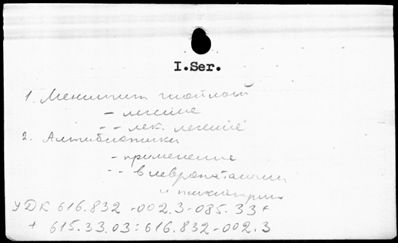 I.Ser.
1. Менингит гнойный
- лечение
-- лек. лечение
2. Антибиотики
- применение
-- в невропатологии
и психиатрии
УДК 616.832-002.3-085.33+
+ 615.33.03:616.832-002.3